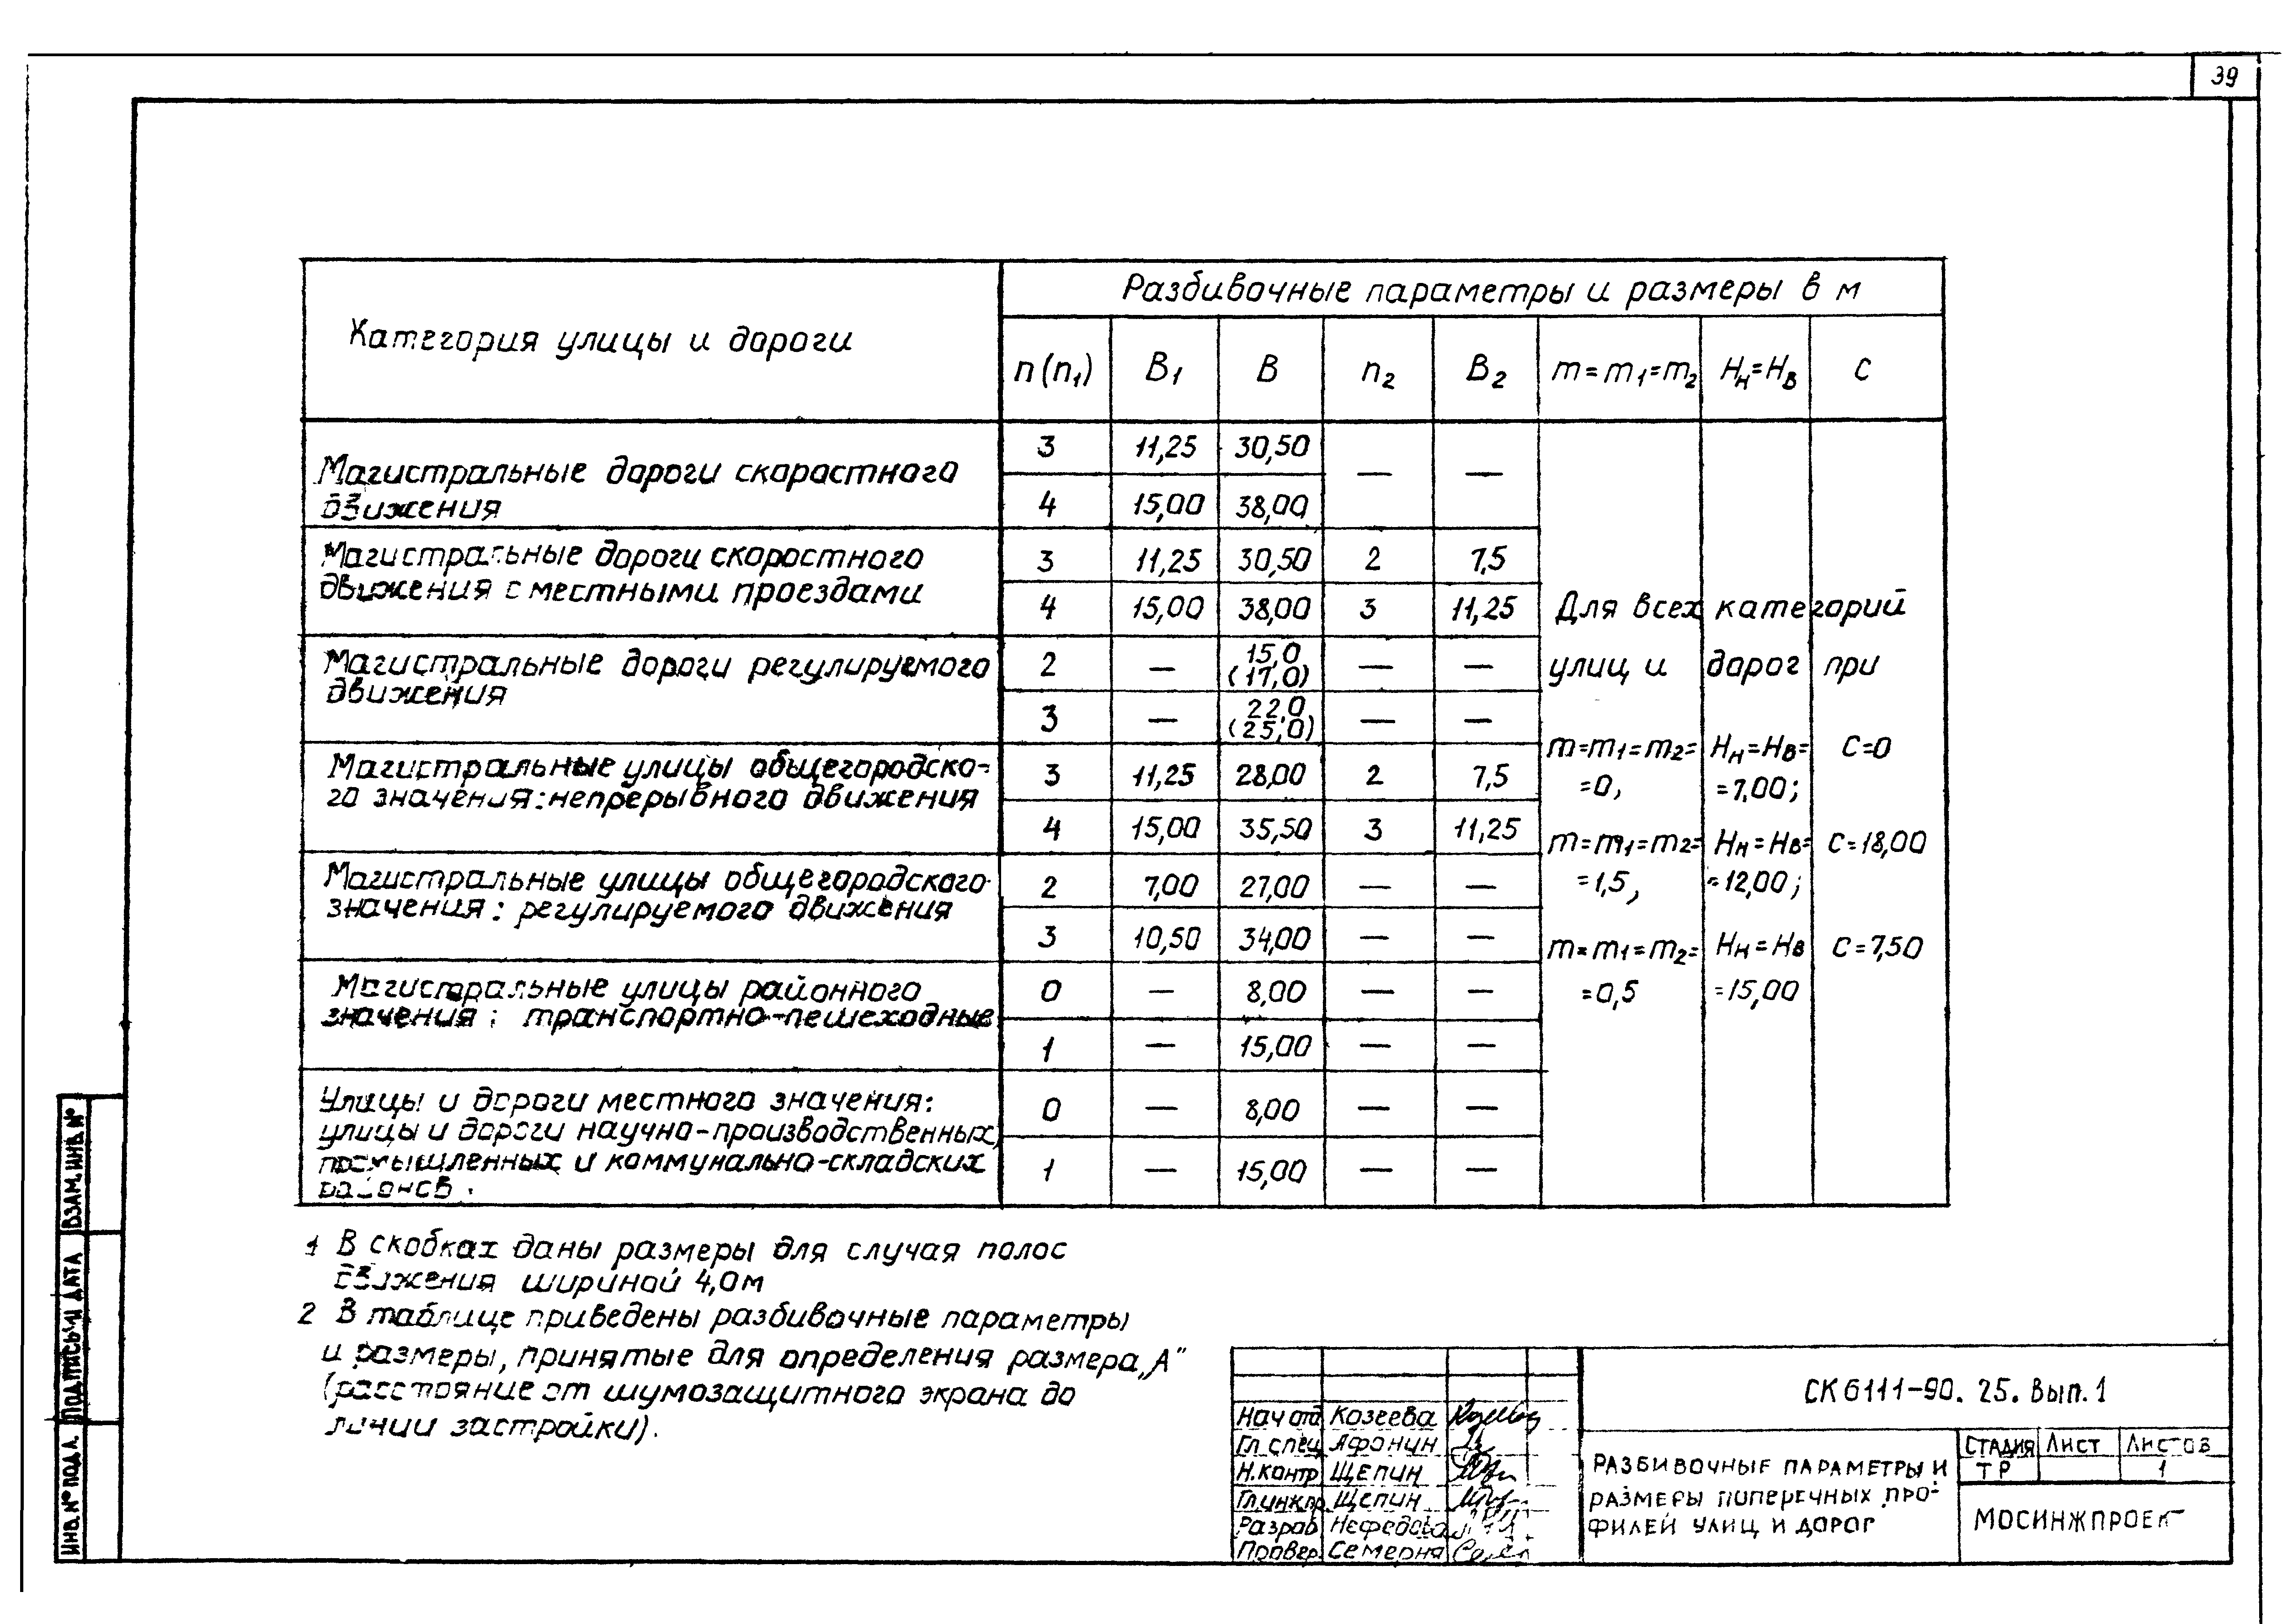 39
Категория улицы и дороги
Разбивочные параметры и размеры в м
n (n₁) B₁ B n₂ B₂ m = m₁ = m₂ Hн = Hв C
Магистральные дороги скарастного
движения
3 11,25 30,50 — —
4 15,00 38,00
Магистральные дороги скоростного
движения с местными проездами
3 11,25 30,50 2 7,5
4 15,00 38,00 3 11,25
Магистральные дороги регулируемого
движения
2 — 15,0 — —
(17,0)
3 — 22,0 — —
(25,0)
Магистральные улицы общегородско-
го значения: непрерывного движения
3 11,25 28,00 2 7,5
4 15,00 35,50 3 11,25
Магистральные улицы общегородского
значения: регулируемого движения
2 7,00 27,00 — —
3 10,50 34,00 — —
Магистральные улицы районного
значения: транспортно-пешеходные
0 — 8,00 — —
1 — 15,00 — —
Улицы и дороги местного значения:
улицы и дороги научно-производственных,
промышленных и коммунально-складских
районов.
0 — 8,00 — —
1 — 15,00 — —
Для всех категорий
улиц и дорог при
m = m₁ = m₂ = Hн = Hв = C = 0
= 0, = 7,00;
m = m₁ = m₂ = Hн = Hв = C = 18,00
= 1,5, = 12,00;
m = m₁ = m₂ = Hн = Hв C = 7,50
= 0,5 = 15,00
1 В скобках даны размеры для случая полос
движения шириной 4,0м
2 В таблице приведены разбивочные параметры
и размеры, принятые для определения размера „А"
(расстояние от шумозащитного экрана до
линии застройки).
ИНВ. № ПОДЛ. ПОДПИСЬ И ДАТА ВЗАМ. ИНВ. №
Нач отд Козеева
Гл. спец Афонин
Н. контр Щепин
Гл. инж. пр Щепин
Разраб Нефедова
Провер. Семерня
СК 6111-90. 25. Вып. 1
РАЗБИВОЧНЫЕ ПАРАМЕТРЫ И
РАЗМЕРЫ ПОПЕРЕЧНЫХ ПРО-
ФИЛЕЙ УЛИЦ И ДОРОГ
СТАДИЯ Лист Листов
ТР 1
МОСИНЖПРОЕКТ